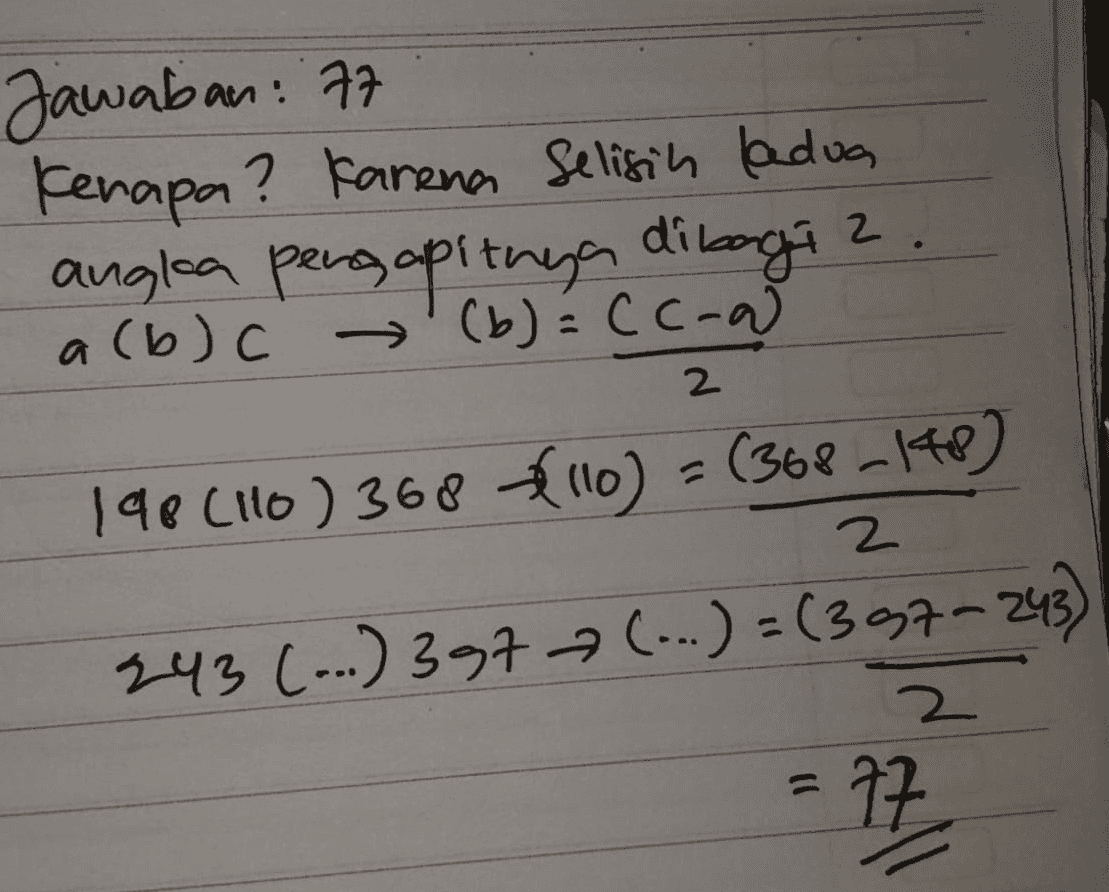 Jawaban: 77
Kenapa? Karena Selisih kedua
angka pengapitnya dibagi 2.
a (b) c → (b) = (c-a)
2
148 (110) 368 → (110) = (368 - 148)
2
243 (...) 397 → (...) = (397 - 243)
2
= 77